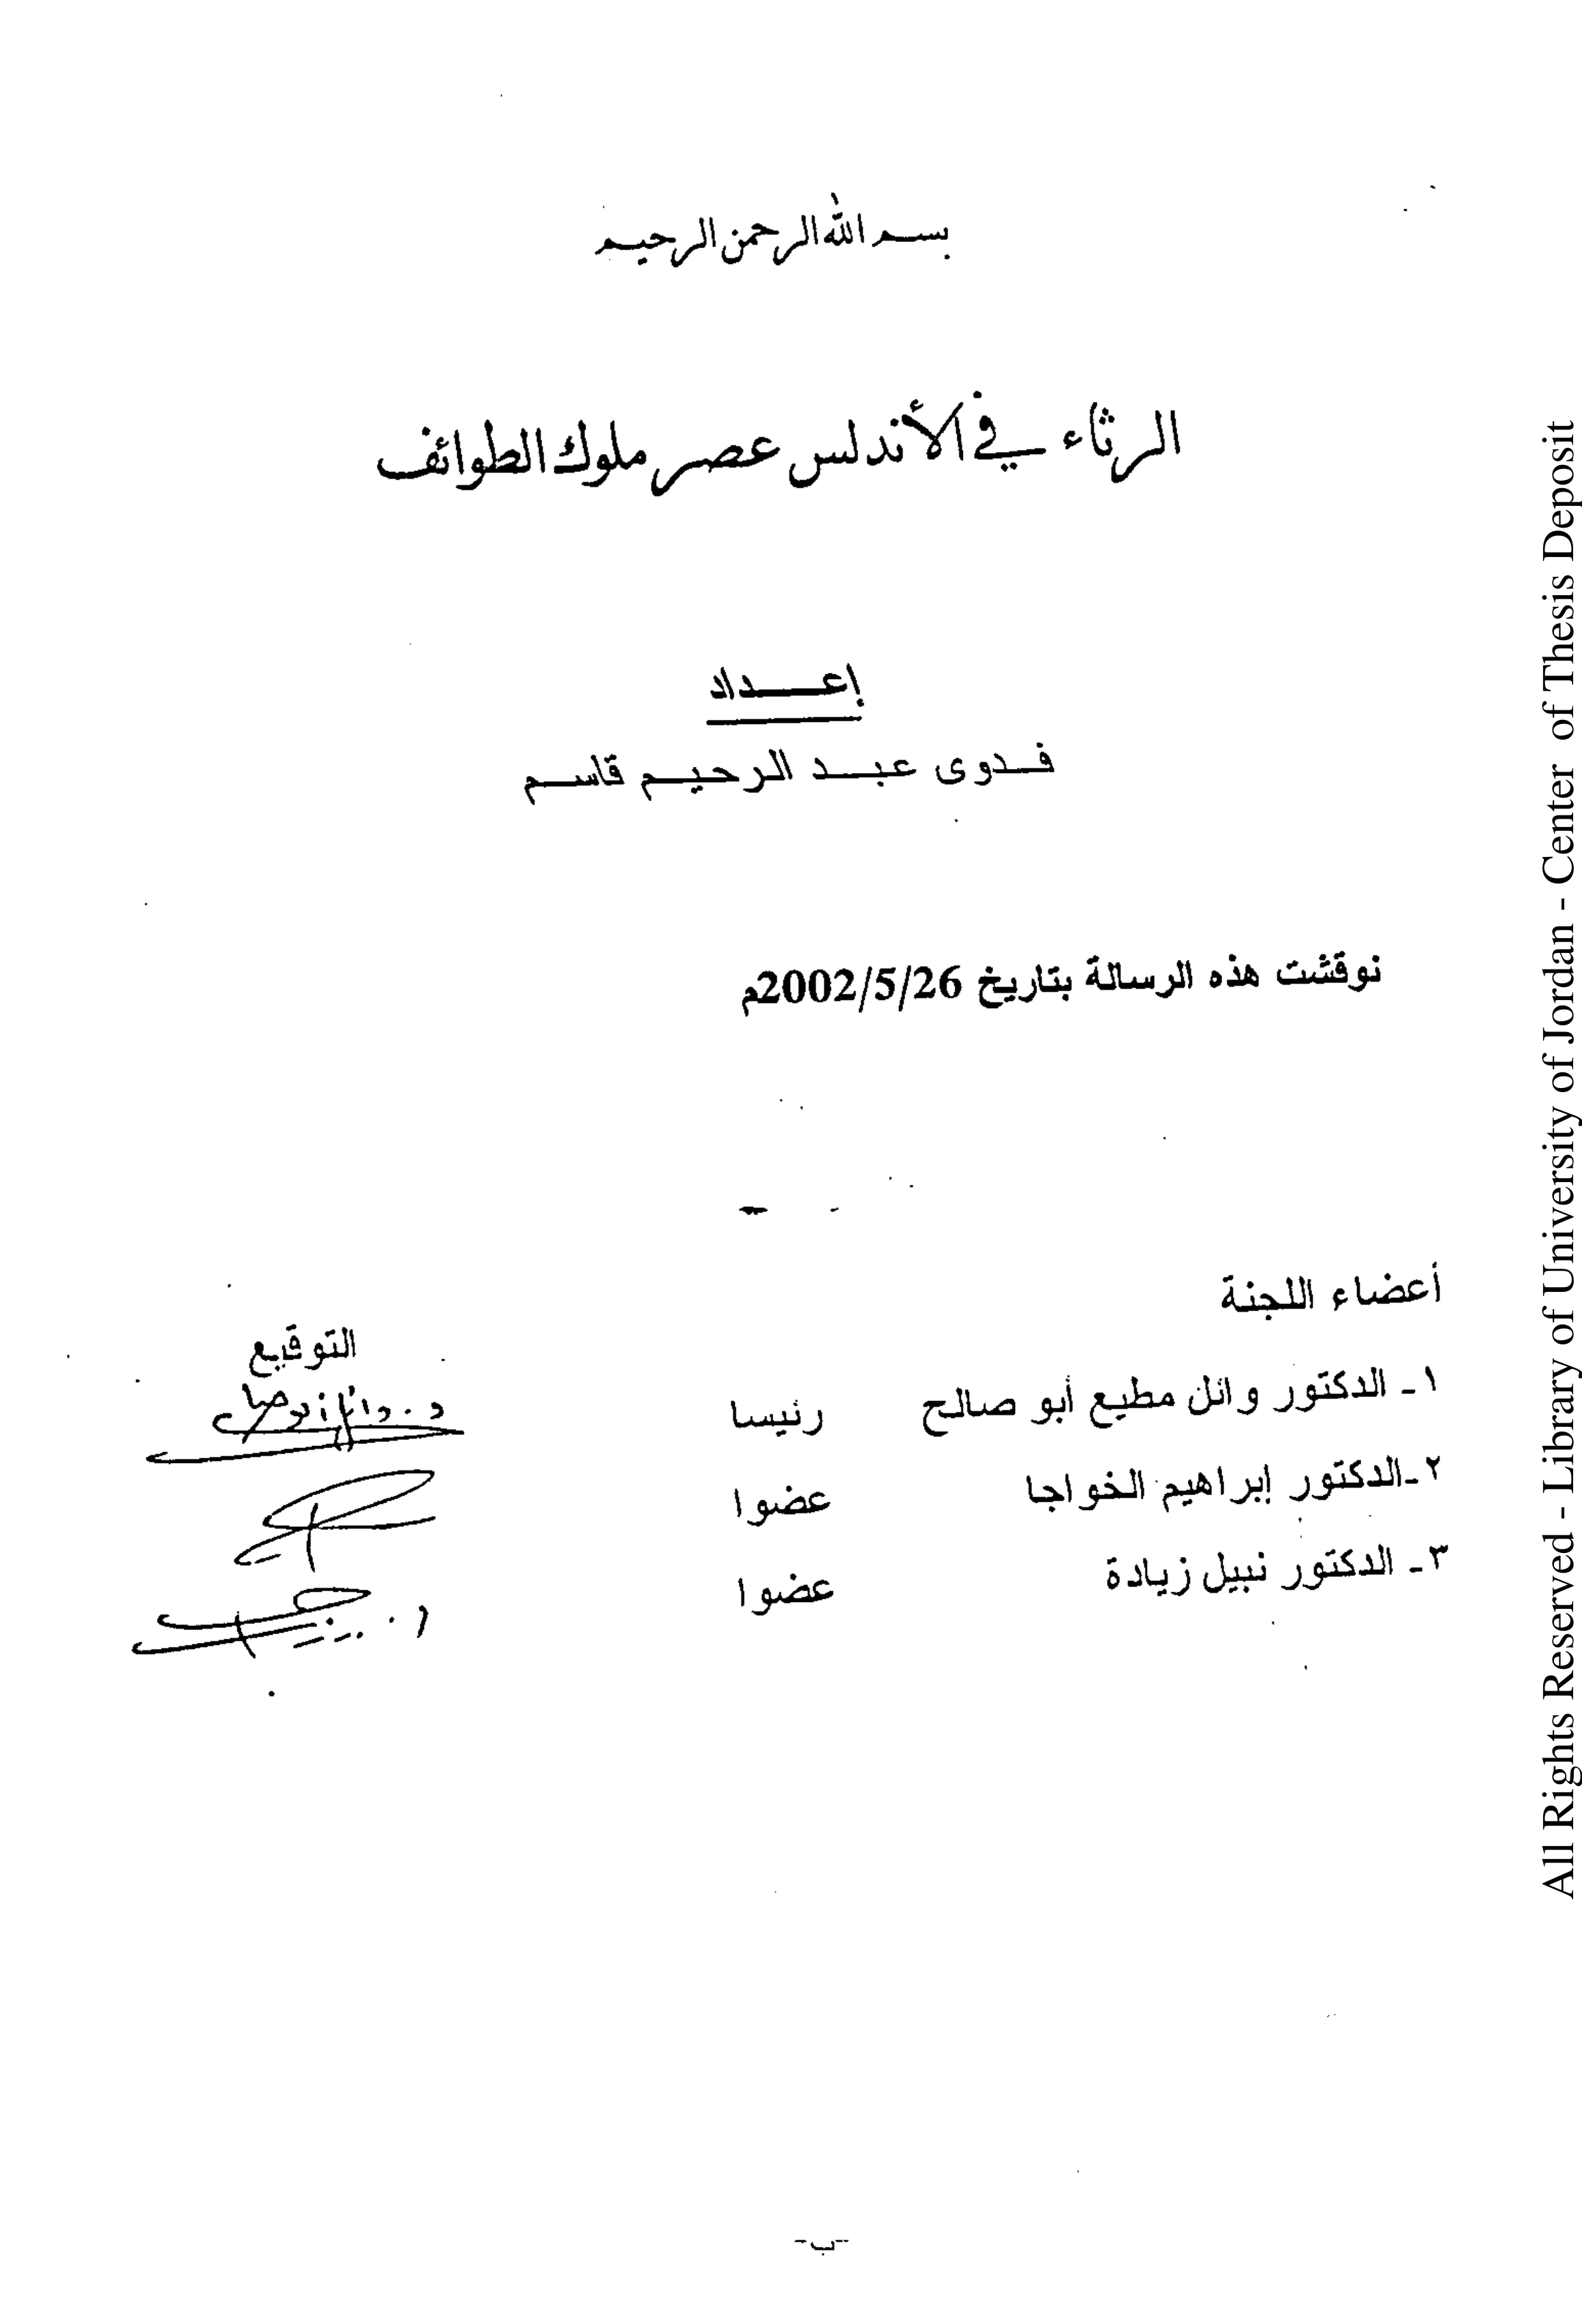 بسم الله الرحمن الرحيم
الرثاء في الأندلس عصر ملوك الطوائف
إعداد
فدوى عبد الرحيم قاسم
نوقشت هذه الرسالة بتاريخ 2002/5/26م
أعضاء اللجنة
التوقيع
١- الدكتور وائل مطيع أبو صالح رئيسا
٢-الدكتور إبراهيم الخواجا عضوا
٣- الدكتور نبيل زيادة عضوا
-ب-
All Rights Reserved - Library of University of Jordan - Center of Thesis Deposit